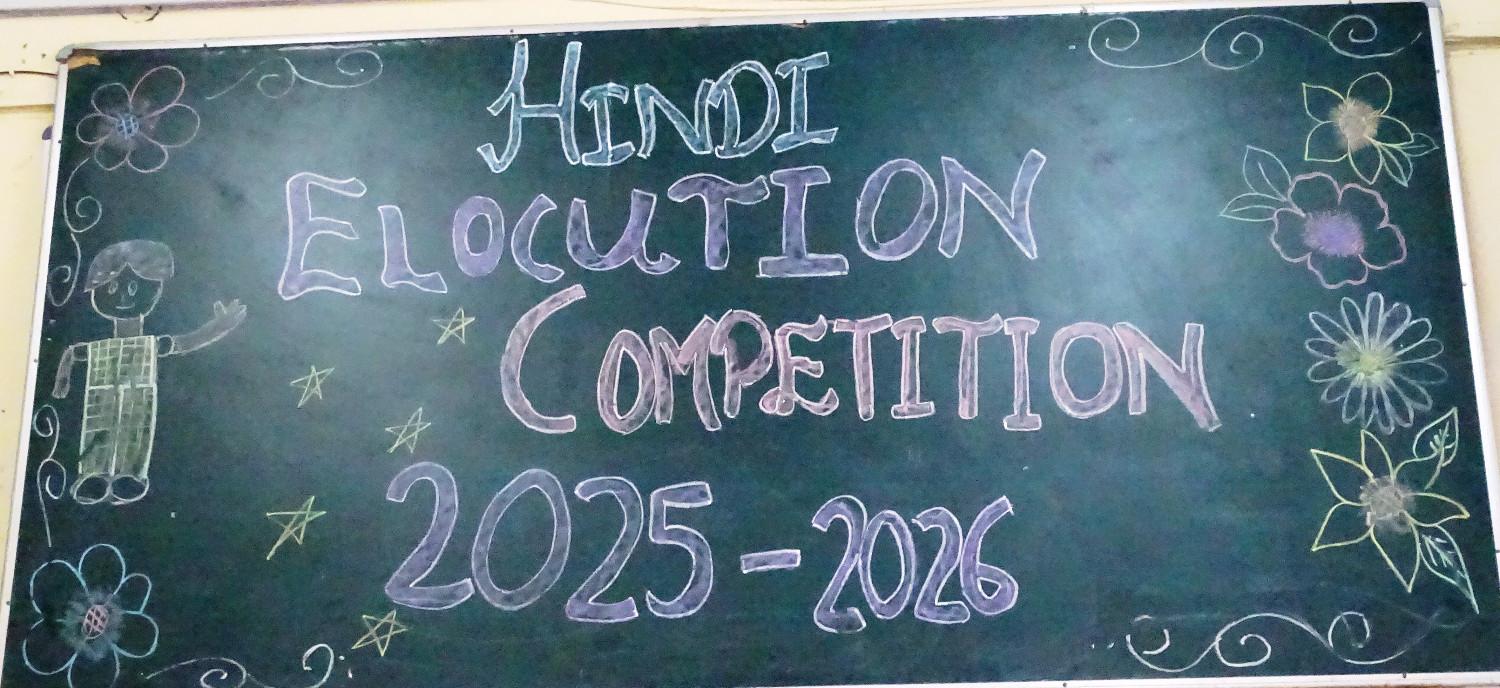 HINDI
ELOCUTION
COMPETITION
2025-2026